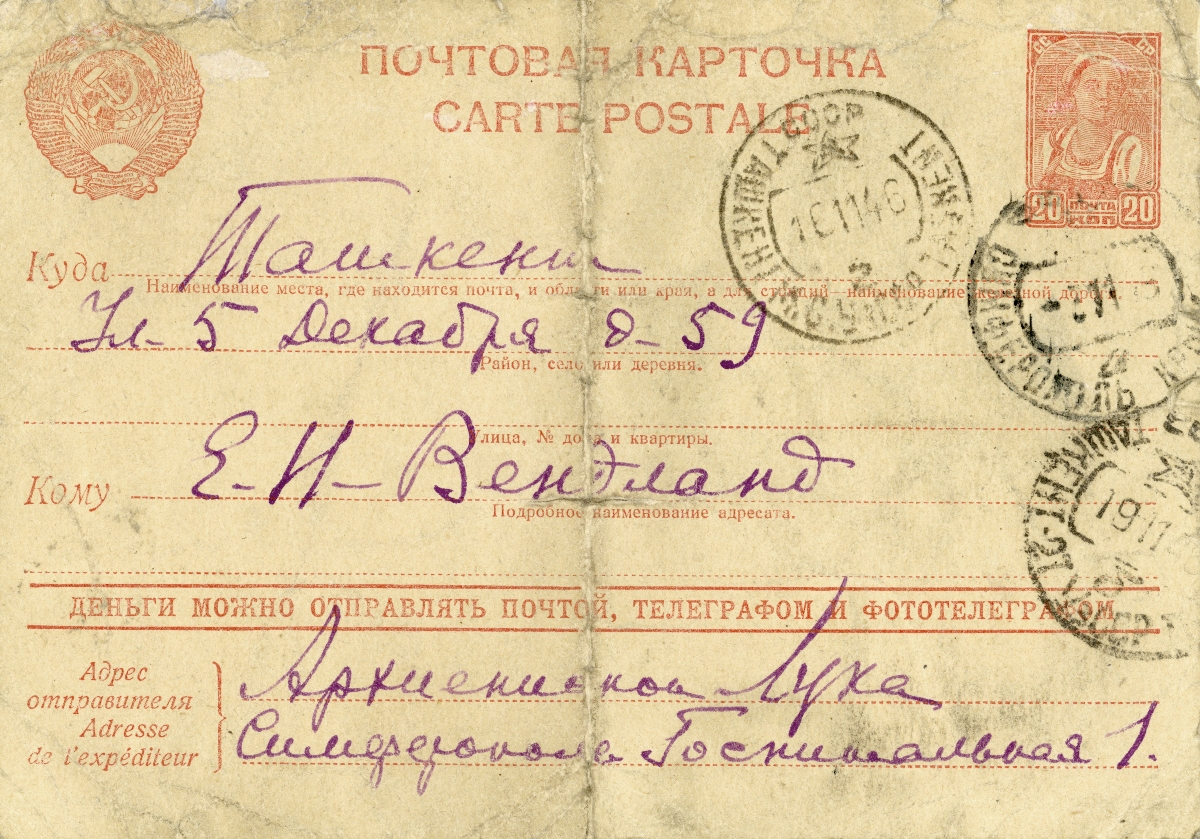 ПОЧТОВАЯ КАРТОЧКА
CARTE POSTALE
СС СР
20 ПОЧТА КОП 20
СССР
ТАШКЕНТ
16 11 46
Куда Ташкент
Наименование места, где находится почта, и области или края, а для станций—наименование железной дороги.
Ул- 5 Декабря д- 59
Район, село или деревня.
СИМФЕРОПОЛЬ
Улица, № дома и квартиры.
Кому Е-И- Вендланд
Подробное наименование адресата.
ТАШКЕНТ
19 11
ДЕНЬГИ МОЖНО ОТПРАВЛЯТЬ ПОЧТОЙ, ТЕЛЕГРАФОМ И ФОТОТЕЛЕГРАФОМ
Адрес отправителя
Adresse de l'expéditeur
Архиепископ Лука
Симферополь Госпитальная 1.